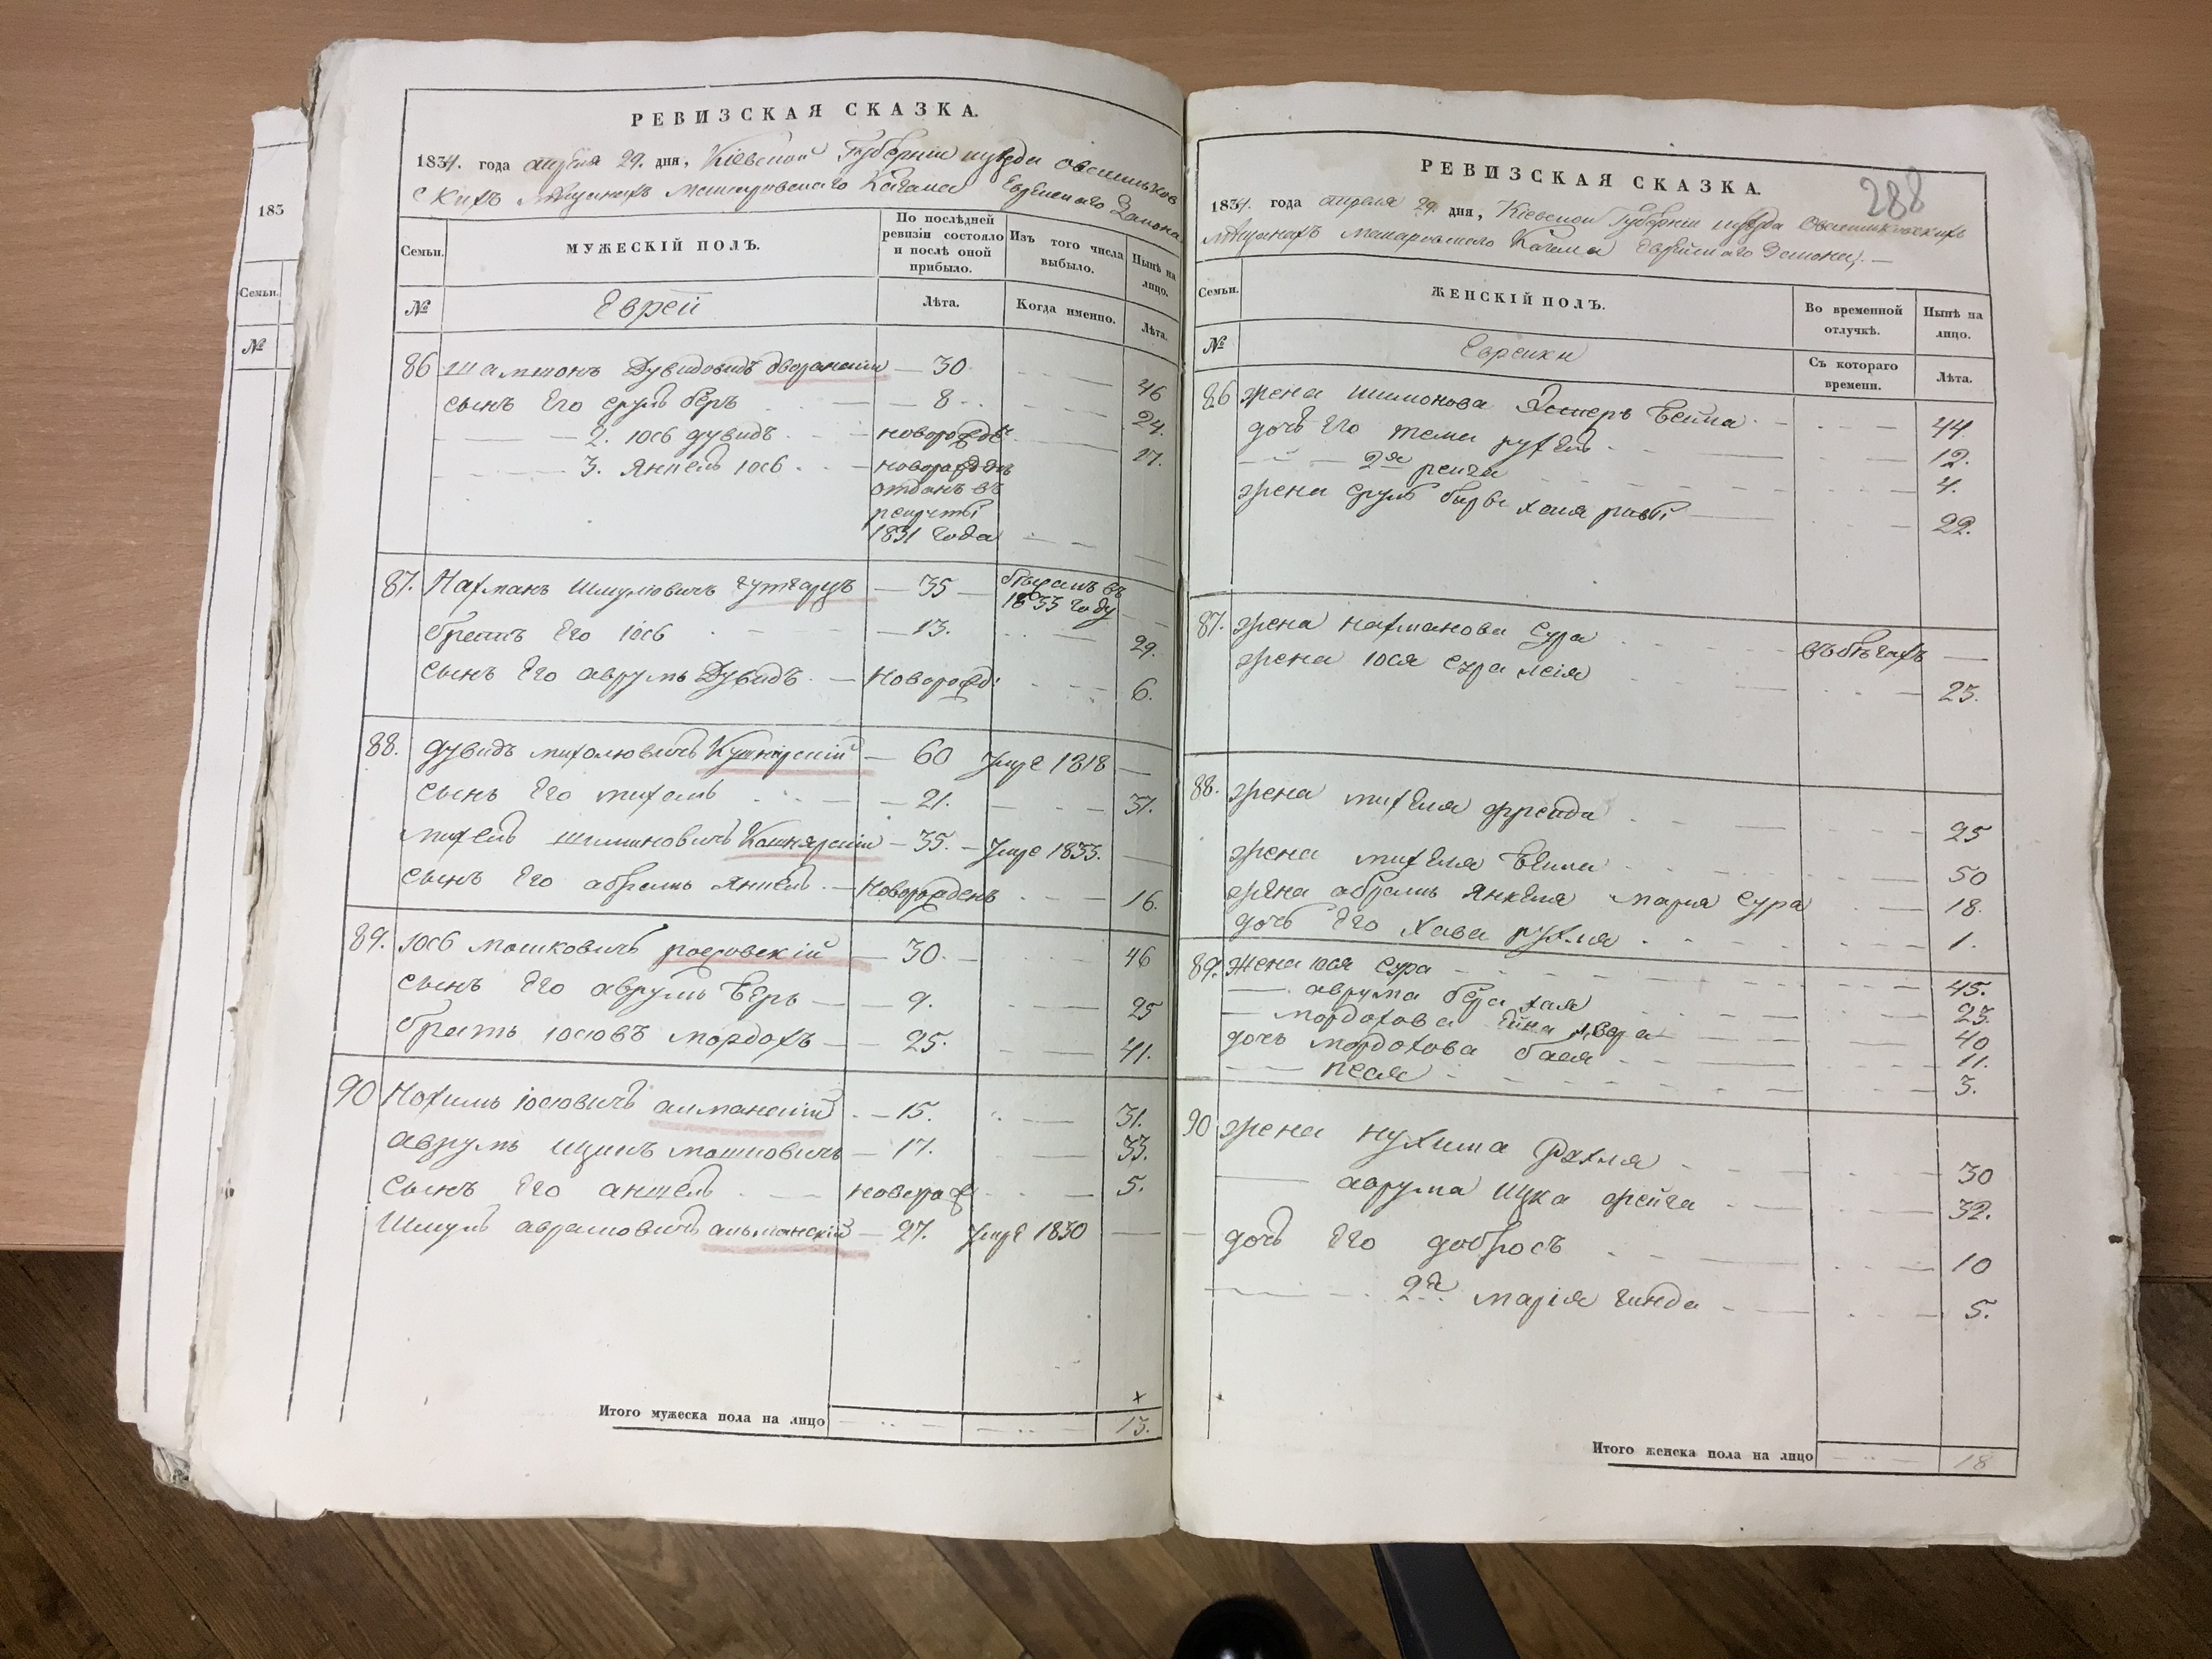 183
Семьи.
№
РЕВИЗСКАЯ СКАЗКА.
1834. года апреля 29. дня, Кіевской Губерніи уезда
Махаровскаго Кагала Еврейскаго Закона
Семьи.
МУЖЕСКІЙ ПОЛЪ.
По послѣдней ревизіи состояло и послѣ оной прибыло.
Изъ того числа выбыло.
Нынѣ на лицо.
№
Еврей
Лѣта.
Когда именно.
Лѣта.
86 Шамшонъ Дувидовичъ — 30 46
сынъ Его Сруль беръ — 8 24.
2. Іось дувидъ новорожде 17.
3. Янкель Іось новорожденъ
отданъ въ
рекруты
1831 года
87. Нахманъ Шмулювичъ — 35 — въ
1833 году
братъ Его Іось — 13. 29.
сынъ Его аврумъ Дувидъ — Новорожд: 6.
88. дувидъ михелювичъ Кушнірскій — 60 умре 1818 —
сынъ Его михель — 21. 37.
михель Кошнярскій — 35. — умре 1833. —
сынъ Его абрамъ Янкель — Новорожденъ 16.
89. Іось мошковичъ росовскій — 30. — 46
сынъ Его аврумъ Беръ — 9. 25
братъ Іосювъ мордохъ — 25. 41.
90 Нохимъ Іосювичъ алманскій — 15. 31.
аврумъ ицикъ мошковичъ — 17. 33.
сынъ Его аншель — новорож 5.
Шмуль аврамовичъ альманскій — 27. умре 1830 —
Итого мужеска пола на лицо 13.
288
РЕВИЗСКАЯ СКАЗКА.
1834. года апреля 29. дня, Кіевской Губерніи уезда
Махаровскаго Кагала Еврейскаго Закона
Семьи.
ЖЕНСКІЙ ПОЛЪ.
Во временной отлучкѣ.
Нынѣ на лицо.
№
Еврейки
Съ котораго времени.
Лѣта.
86 жена Бейла 44
дочь Его рухель 12.
2я 4.
жена Сруль хая 22.
87. жена нахманова Сура въ бѣгахъ —
жена Іося Сура лея 23.
88. жена михеля фрейда 25
жена михеля Бейла 50
жена абрамъ Янкеля марія Сура 18.
дочь Его Хава рухля 1.
89. Жена Іося Сура 45.
— аврума бера хая 23.
— мордохова двора 40
дочь мордохова бася 11.
— песя 3.
90 жена нухима Рахля 30
— аврума Ицка фейга 32.
дочь Его добрось 10
2я марія гинда 5.
Итого женска пола на лицо 18